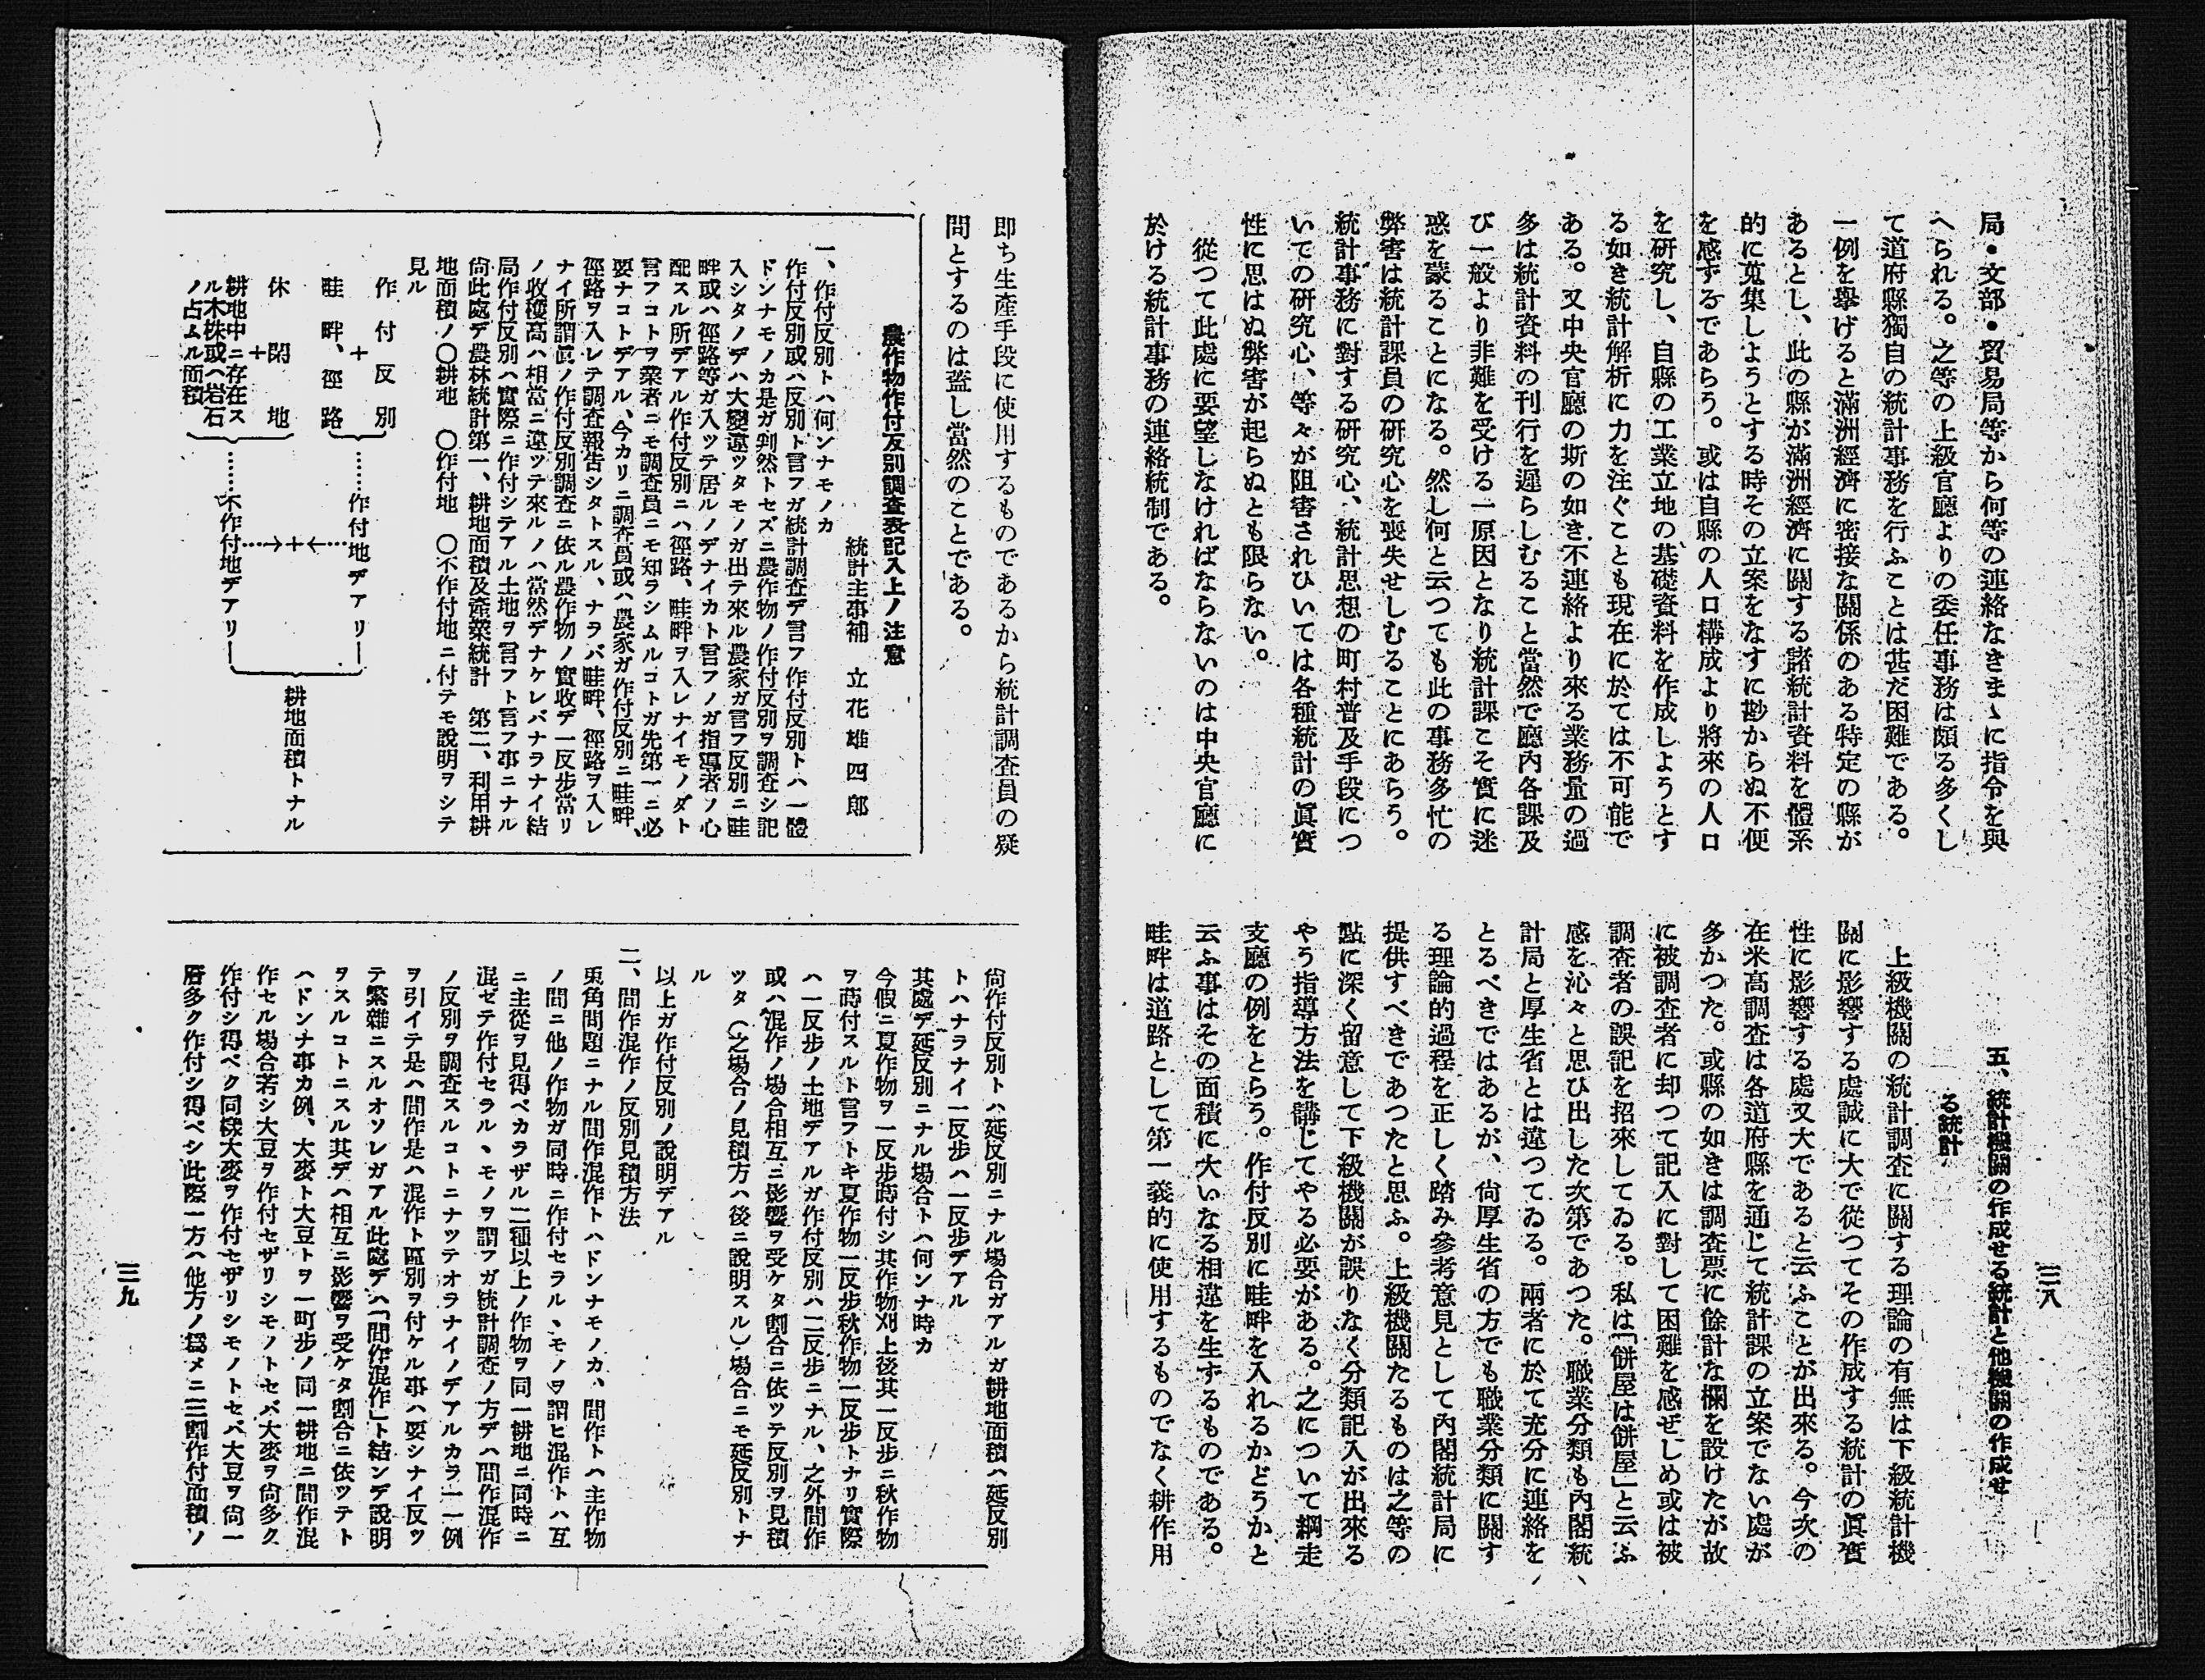 三八
局・文部・貿易局等から何等の連絡なきまゝに指令を與
へられる。之等の上級官廳よりの委任事務は頗る多くし
て道府縣獨自の統計事務を行ふことは甚だ困難である。
一例を擧げると滿洲經濟に密接な關係のある特定の縣が
あるとし、此の縣が滿洲經濟に關する諸統計資料を體系
的に蒐集しようとする時その立案をなすに尠からぬ不便
を感ずるであらう。或は自縣の人口構成より將來の人口
を研究し、自縣の工業立地の基礎資料を作成しようとす
る如き統計解析に力を注ぐことも現在に於ては不可能で
ある。又中央官廳の斯の如き不連絡より來る業務量の過
多は統計資料の刊行を遲らしむること當然で廳內各課及
び一般より非難を受ける一原因となり統計課こそ實に迷
惑を蒙ることになる。然し何と云つても此の事務多忙の
弊害は統計課員の研究心を喪失せしむることにあらう。
統計事務に對する研究心、統計思想の町村普及手段につ
いての研究心、等々が阻害されひいては各種統計の眞實
性に思はぬ弊害が起らぬとも限らない。
從つて此處に要望しなければならないのは中央官廳に
於ける統計事務の連絡統制である。
五、統計機關の作成せる統計と他機關の作成せ
る統計
上級機關の統計調査に關する理論の有無は下級統計機
關に影響する處誠に大で從つてその作成する統計の眞實
性に影響する處又大であると云ふことが出來る。今次の
在米高調査は各道府縣を通じて統計課の立案でない處が
多かつた。或縣の如きは調査票に餘計な欄を設けたが故
に被調査者に却つて記入に對して困難を感ぜしめ或は被
調査者の誤記を招來してゐる。私は「餅屋は餅屋」と云ふ
感を沁々と思ひ出した次第であつた。職業分類も內閣統
計局と厚生省とは違つてゐる。兩者に於て充分に連絡を
とるべきではあるが、尙厚生省の方でも職業分類に關す
る理論的過程を正しく踏み參考意見として內閣統計局に
提供すべきであつたと思ふ。上級機關たるものは之等の
點に深く留意して下級機關が誤りなく分類記入が出來る
やう指導方法を講じてやる必要がある。之について綱走
支廳の例をとらう。作付反別に畦畔を入れるかどうかと
云ふ事はその面積に大いなる相違を生ずるものである。
畦畔は道路として第一義的に使用するものでなく耕作用
即ち生產手段に使用するものであるから統計調査員の疑
問とするのは蓋し當然のことである。
農作物作付反別調査表記入上ノ注意
統計主事補 立花雄四郎
一、作付反別トハ何ンナモノカ
作付反別或ハ反別ト言フガ統計調査デ言フ作付反別トハ一體
ドンナモノカ是ガ判然トセズニ農作物ノ作付反別ヲ調査シ記
入シタノデハ大變違ツタモノガ出テ來ル農家ガ言フ反別ニ畦
畔或ハ徑路等ガ入ツテ居ルノデナイカト言フノガ指導者ノ心
配スル所デアル作付反別ニハ徑路、畦畔ヲ入レナイモノダト
言フコトヲ業者ニモ調査員ニモ知ラシムルコトガ先第一ニ必
要ナコトデアル、今カリニ調査員或ハ農家ガ作付反別ニ畦畔、
徑路ヲ入レテ調査報告シタトスル、ナラバ畦畔、徑路ヲ入レ
ナイ所謂眞ノ作付反別調査ニ依ル農作物ノ實收デ一反步當リ
ノ收穫高ハ相當ニ違ツテ來ルノハ當然デナケレバナラナイ結
局作付反別ハ實際ニ作付シテアル土地ヲ言フト言フ事ニナル
尙此處デ農林統計第一、耕地面積及產業統計 第二、利用耕
地面積ノ〇耕地 〇作付地 〇不作付地ニ付テモ說明ヲシテ
見ル
作付反別
+
畦畔、徑路
……作付地デアリ
休閑地
+
耕地中ニ存在ス
ル木株或ハ岩石
ノ占ムル面積
……不作付地デアリ
…→+←…
耕地面積トナル
尙作付反別トハ延反別ニナル場合ガアルガ耕地面積ハ延反別
トハナラナイ一反步ハ一反步デアル
其處デ延反別ニナル場合トハ何ンナ時カ
今假ニ夏作物ヲ一反步蒔付シ其作物刈上後其一反步ニ秋作物
ヲ蒔付スルト言フトキ夏作物一反步秋作物一反步トナリ實際
ハ一反步ノ土地デアルガ作付反別ハ二反步ニナル、之外間作
或ハ混作ノ場合相互ニ影響ヲ受ケタ割合ニ依ツテ反別ヲ見積
ツタ(之場合ノ見積方ハ後ニ說明スル)場合ニモ延反別トナ
ル
以上ガ作付反別ノ說明デアル
二、間作混作ノ反別見積方法
兎角問題ニナル間作混作トハドンナモノカ、間作トハ主作物
ノ間ニ他ノ作物ガ同時ニ作付セラルヽモノヲ謂ヒ混作トハ互
ニ主從ヲ見得ベカラザル二種以上ノ作物ヲ同一耕地ニ同時ニ
混ゼテ作付セラルヽモノヲ謂フガ統計調査ノ方デハ間作混作
ノ反別ヲ調査スルコトニナツテオラナイノデアルカラ一一例
ヲ引イテ是ハ間作是ハ混作ト區別ヲ付ケル事ハ要シナイ反ツ
テ繁雜ニスルオソレガアル此處デハ「間作混作」ト結ンデ說明
ヲスルコトニスル其デハ相互ニ影響ヲ受ケタ割合ニ依ツテト
ハドンナ事カ例、大麥ト大豆トヲ一町步ノ同一耕地ニ間作混
作セル場合若シ大豆ヲ作付セザリシモノトセバ大麥ヲ尙多ク
作付シ得ベク同樣大麥ヲ作付セザリシモノトセバ大豆ヲ尙一
層多ク作付シ得ベシ此際一方ハ他方ノ爲メニ三割作付面積ノ
三九